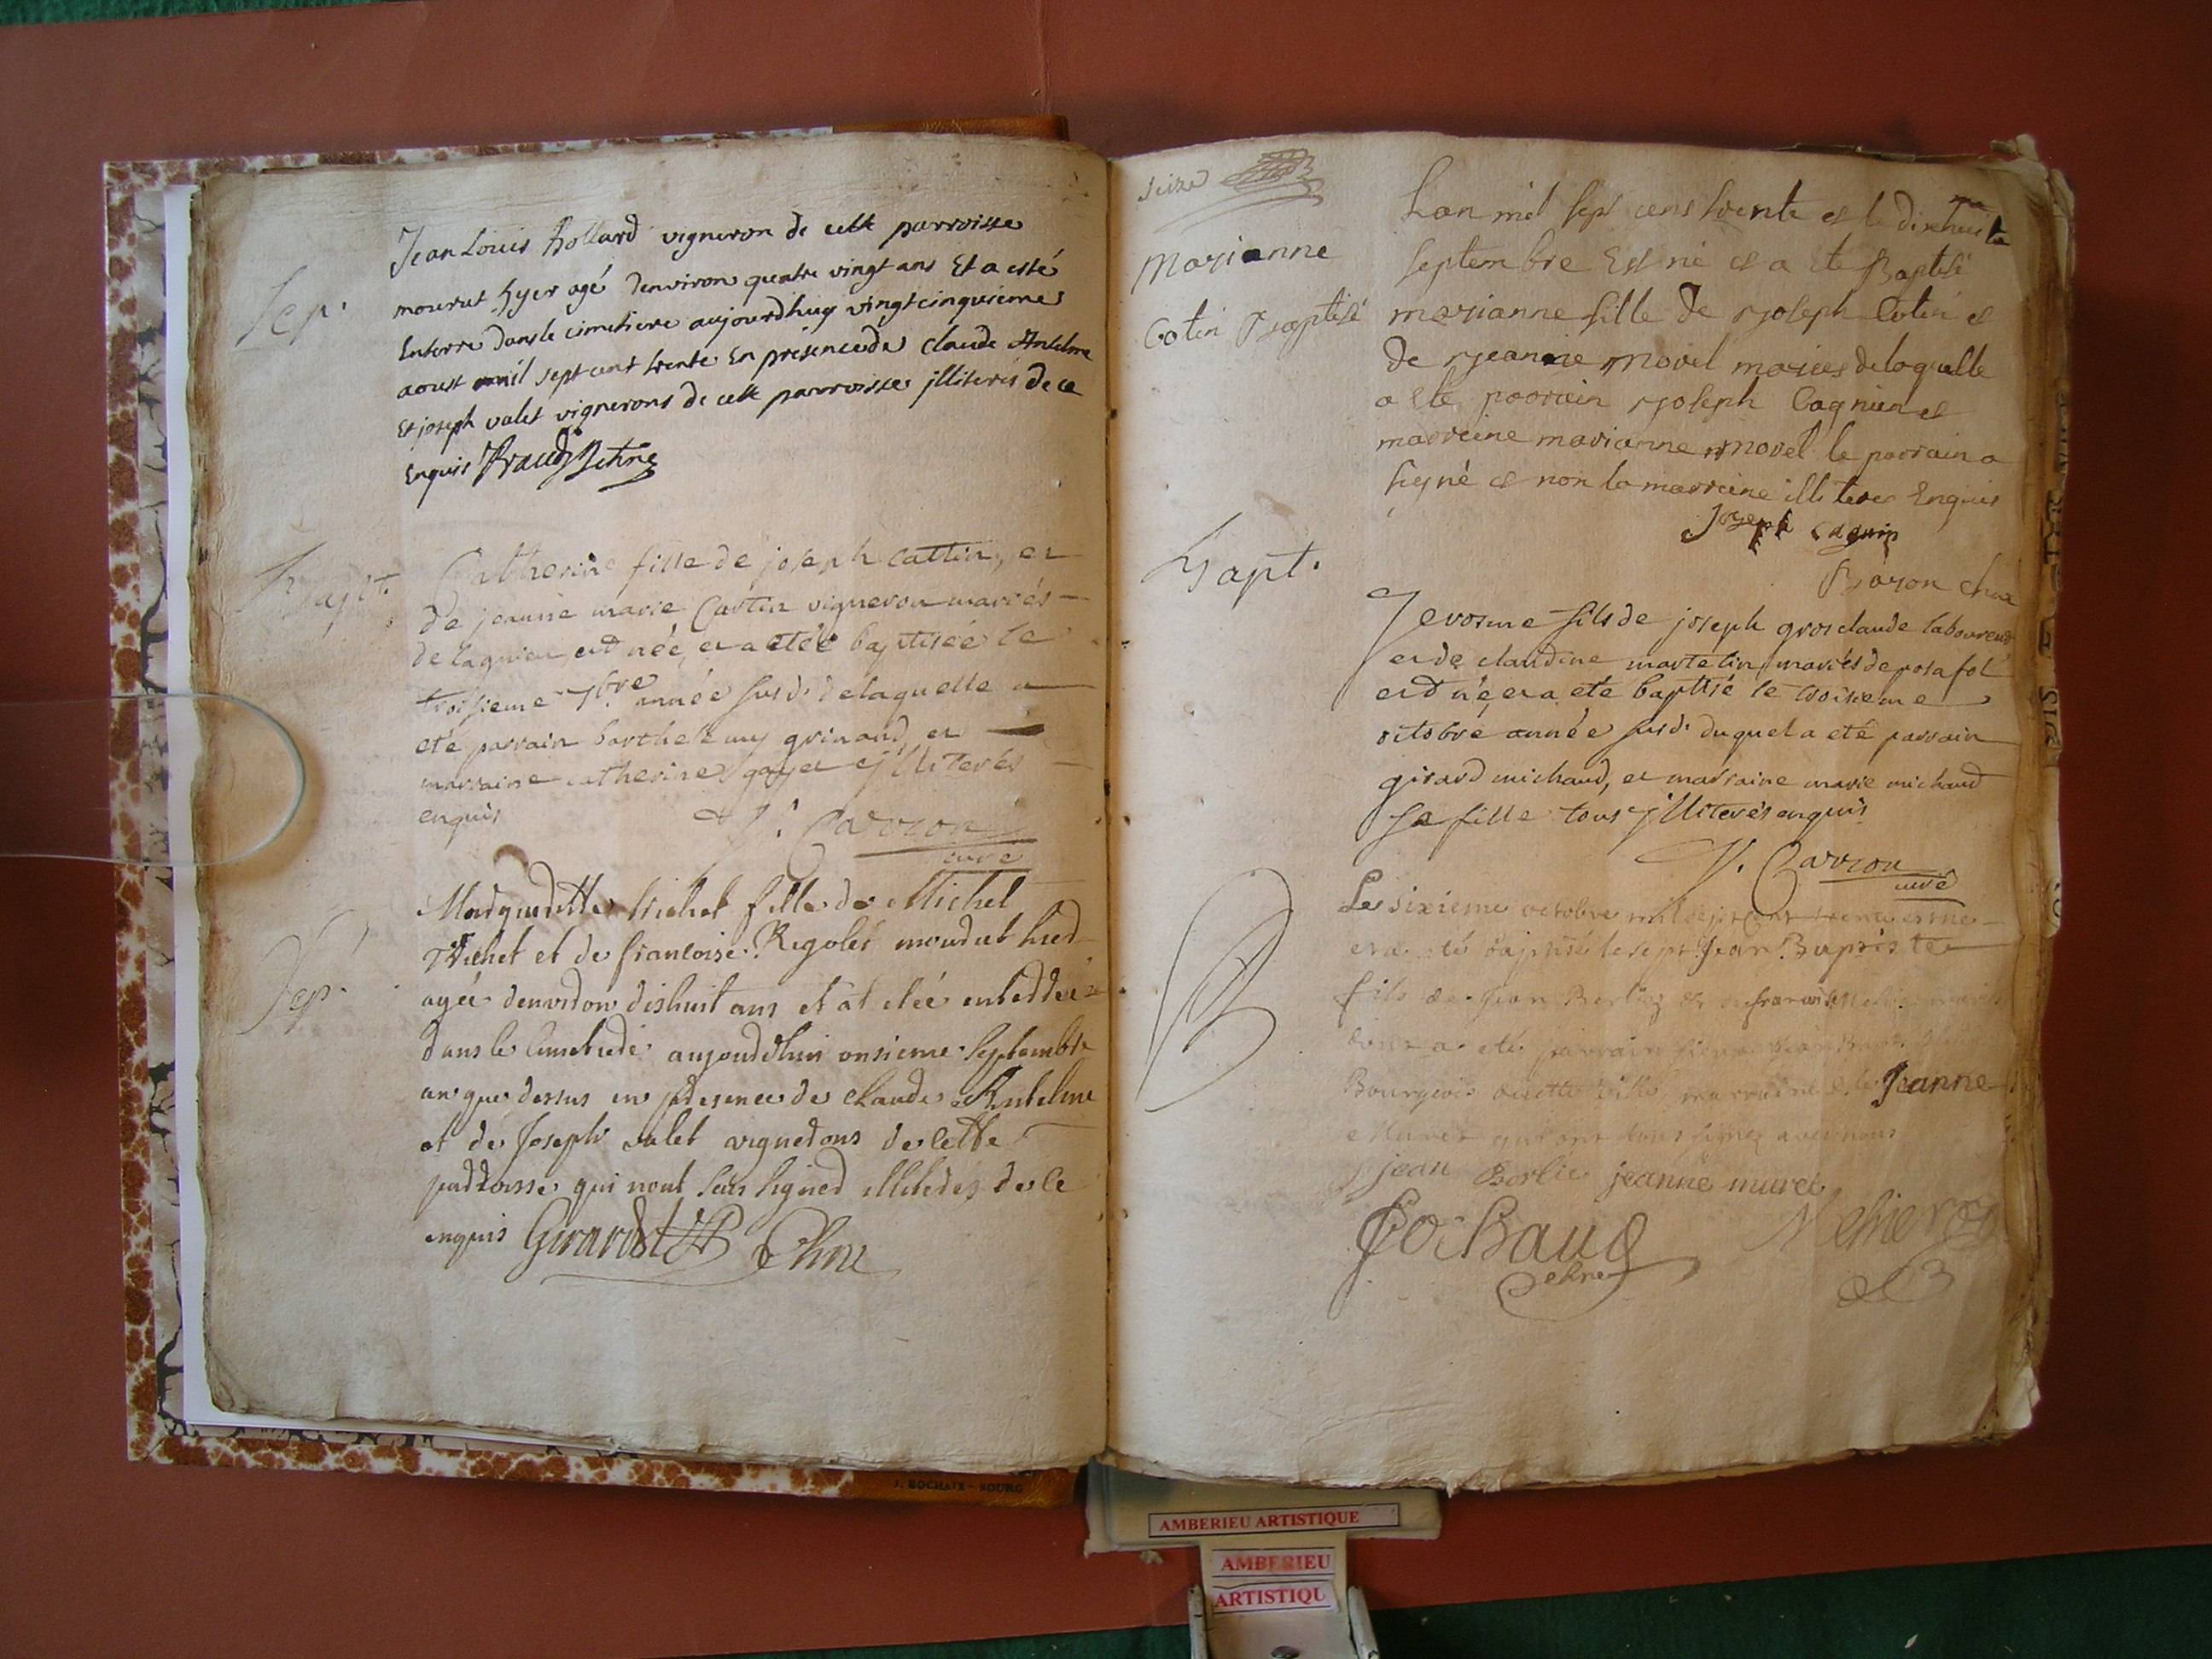 Sep.
Jean Louis Hollard vigneron de cette parroisse
mourut hyer agé denviron quatre vingt ans Et a esté
Enterre dans le cimetiere aujourdhuy vingtcinquieme
aoust mil sept cent trente En presence de claude Antelme
Et joseph valet vignerons de cette parroisse jlliterés de ce
Enquis
Bapt.
Catherine fille de joseph Cattin, et
de jeanne marie Cartin vigneron mariés
de lagnieu est née, et a etée baptisée le
troisieme 7.bre année susd. de laquelle a
eté parrain barthelemy grinand et
marraine catherine gayet jlliterés
enquis
Carron
curé
Sep.
Margueritte Trichet fille de Michel
Trichet et de francoise Rigolet mourut hier
agée denviron dishuit ans et at etée enterrée
dans le cimetiere aujourdhui onsieme Septembre
an que dessus en presence de claude Anthelme
et de Joseph valet vignerons de cette
parroisse qui nont sceu signer illiteres de ce
enquis Girardot
seize
Marianne
Cotin Baptisé
Lan mil sept cens trente et le dixhuit
septembre Est né et a ete Baptisé
marianne fille de Joseph Cotin et
de Jeanne morel maries de laquelle
a ete parrein Joseph Cagnin et
marreine marianne morel le parrain a
signé et non la marreine illiteres Enquis
Joseph Cagnin
Bapt.
Jerosme fils de joseph grosclaude laboureur
et de claudine martelin mariés de posafol
est né, et a eté baptisé le troisieme
octobre année susd. duquel a eté parrain
girard michaud, et marraine marie michaud
sa fille tous jlliterés enquis
Carron
curé
Le sixieme octobre mil sept cent trente est né
et a eté baptisé le sept Jean Baptiste
fils de Jean
a eté parrain sieur
Bourgeois de cette ville, marraine Jeanne
qui ont tous signez avec nous
jean Borlie jeanne muret
Cochaud
J. ROCHAIX - BOURG
AMBERIEU ARTISTIQUE
AMBERIEU
ARTISTIQU